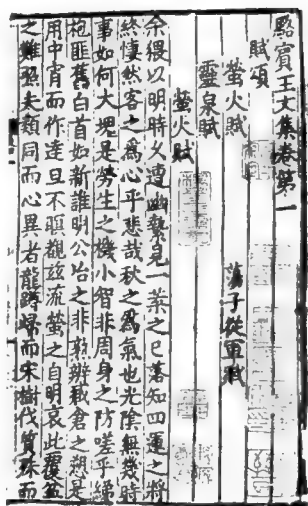 駱賓王文集卷第一
賦頌
螢火賦 蕩子從軍賦
靈泉賦
螢火賦
余猥以明時久遭幽縶見一葉之已落知四運之將
終悽然客之爲心乎悲哉秋之爲氣也光陰無幾時
事如何大塊是勞生之機小智非周身之防嗟乎綈
袍匪舊白首如新誰明公冶之非孰辯臧倉之愬是
用中宵而作達旦不暝覩兹流螢之自明哀此覆盆
之難照夫類同而心異者龍蹲歸而宋樹伐質殊而